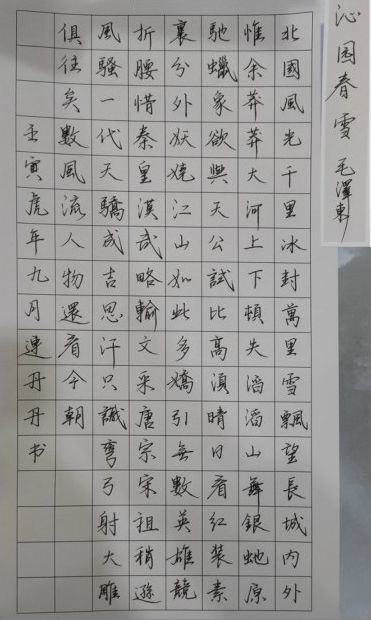 沁园春雪 毛澤東
北國風光千里冰封萬里雪飄望長城内外
惟余莽莽大河上下頓失滔滔山舞銀虵原
馳蠟象欲與天公試比高湏晴日看紅装素
裹分外妖嬈江山如此多嬌引無數英雄競
折腰惜秦皇漢武略輸文采唐宗宋祖稍遜
風騷一代天驕成吉思汗只識彎弓射大雕
俱往矣數風流人物還看今朝
壬寅虎年九月連丹丹书